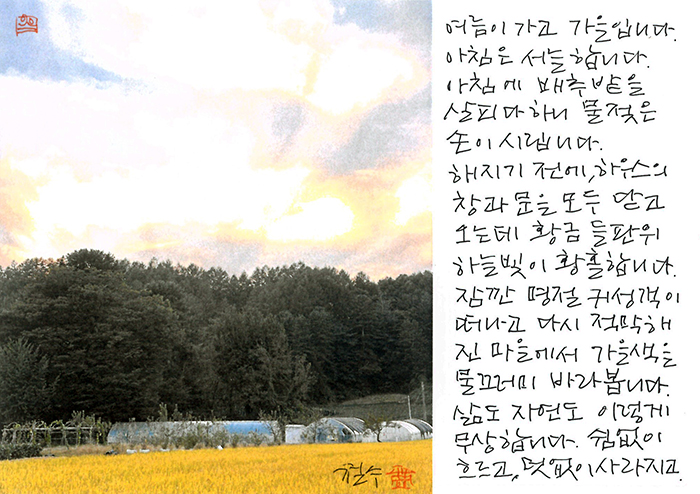 여름이 가고 가을입니다.
아침은 서늘합니다.
아침에 배추밭을
살피다 하니 물젖은
손이 시립니다.
해지기 전에, 하우스의
창과 문을 모두 닫고
오는데 황금 들판위
하늘빛이 황홀합니다.
잠깐 명절 귀성객이
떠나고 다시 적막해
진 마을에서 가을색을
물끄러미 바라봅니다.
삶도 자연도 이렇게
무상합니다. 쉼없이
흐르고, 덧없이 사라지고.
철수